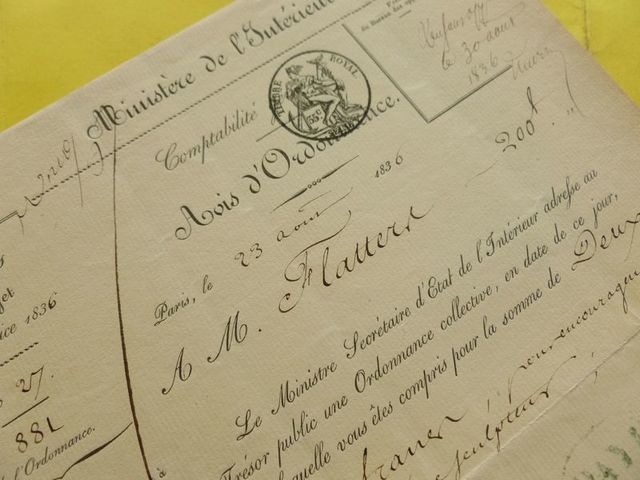 Ministère de l'Intérieur
Comptabilité
TIMBRE ROYAL
35c
Avis d'Ordonnance.
le 30 août
1836
Paris, le 23 août 1836
A M. Flatters
200f
Le Ministre Secrétaire d'Etat de l'Intérieur adresse au
Trésor public une Ordonnance collective, en date de ce jour,
laquelle vous êtes compris pour la somme de Deux
francs, pour encouragem
sculpteur
ice 1836
27
881
d'Ordonnance.